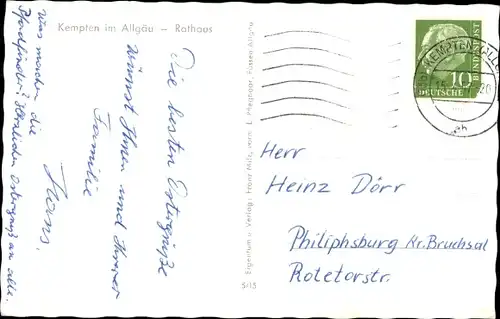 Kempten im Allgäu – Rathaus
Die besten Ostergrüße
wünscht Ihnen und Ihrer
Familie
Hans.
Was machen die
Pfadfinder? Herzlichen Ostergruß an alle.
Eigentum u. Verlag: Franz Milz, vorm. L. Pfleghaar, Füssen Allgäu
5/15
KEMPTEN (ALLG
DEUTSCHE
BUNDESPOST
10
Herr
Heinz Dörr
Philiphsburg Kr. Bruchsal
Rotetorstr.